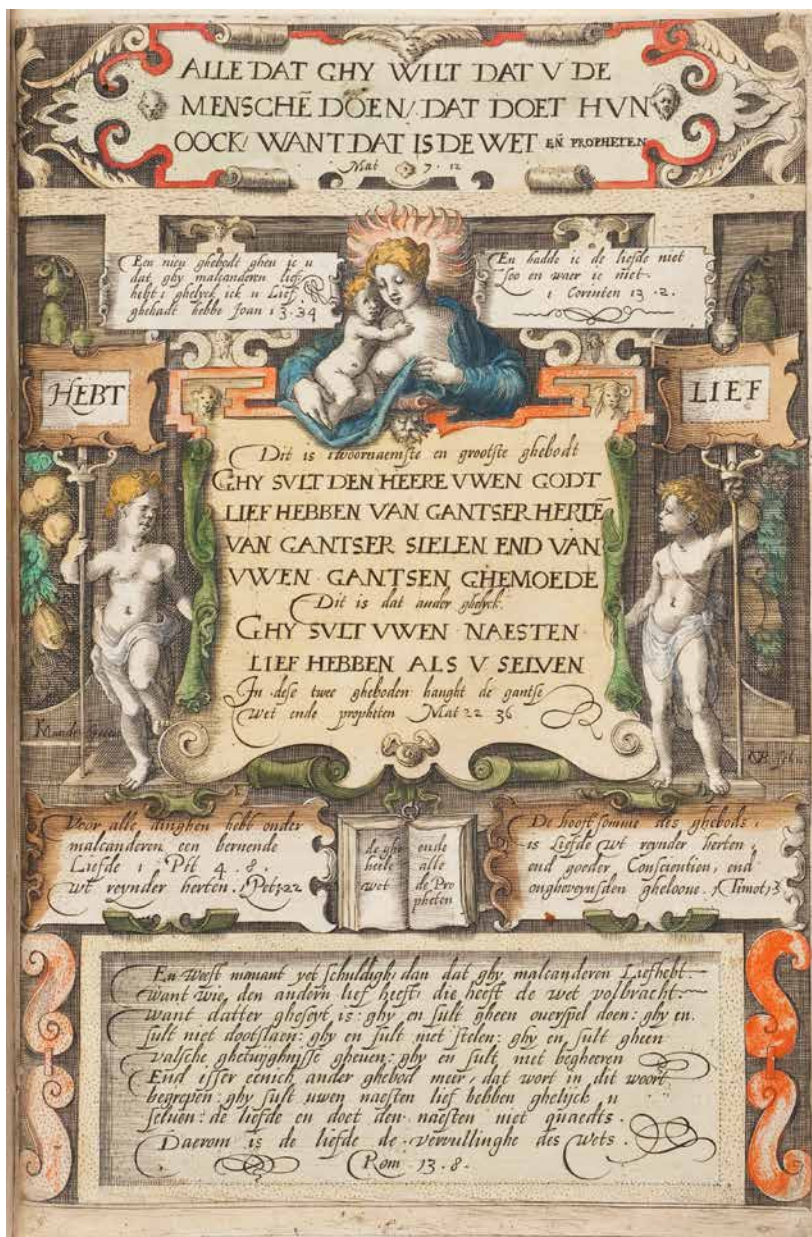 ALLE DAT GHY WILT DAT V DE
MENSCHẼ DOEN/ DAT DOET HVN
OOCK/ WANT DAT IS DE WET EÑ PROPHETEN
Mat 7.12
Een nieu ghebodt gheu ic u
dat ghy malcanderen lief
hebt: ghelyck ick u Lief
ghehadt hebbe Joan 13.34
En hadde ic de liefde niet
soo en waer ic niet.
1 Corinten 13.2.
HEBT
LIEF
Dit is tvoornaemste en grootste ghebodt
GHY SVLT DEN HEERE VWEN GODT
LIEF HEBBEN VAN GANTSER HERTẼ
VAN GANTSER SIELEN END VAN
VWEN GANTSEN GHEMOEDE
Dit is dat ander ghelyck.
GHY SVLT VWEN NAESTEN
LIEF HEBBEN ALS V SELVEN
In dese twee gheboden haught de gantse
wet ende propheten Mat 22 36
Voor alle dinghen hebt onder
malcanderen een bernende
Liefde 1 Pet 4.8.
wt reynder herten. 1 Pet 1.22
de ghe
heele
wet
ende
alle
de Pro
pheten
De hooft somme des ghebods,
is Liefde wt reynder herten,
end goeder Conscientien, end
ongheveynsden gheloove. 1 Timot 1 3
En weest niemant yet schuldigh, dan dat ghy malcanderen Liefhebt.
want wie den andern lief heeft, die heeft de wet volbracht.
want datter gheseyt is: ghy en sult gheen overspel doen: ghy en
sult niet dootslaen: ghy en sult niet stelen: ghy en sult gheen
valsche ghetuyghnisse gheuen: ghy en sult niet begheeren
End isser eenich ander ghebod meer, dat wort in dit woort
begrepen: ghy sult uwen naesten lief hebben ghelijck u
selven: de liefde en doet den naesten niet quaedts.
Daerom is de liefde de vervullinghe des wets.
Rom. 13.8.